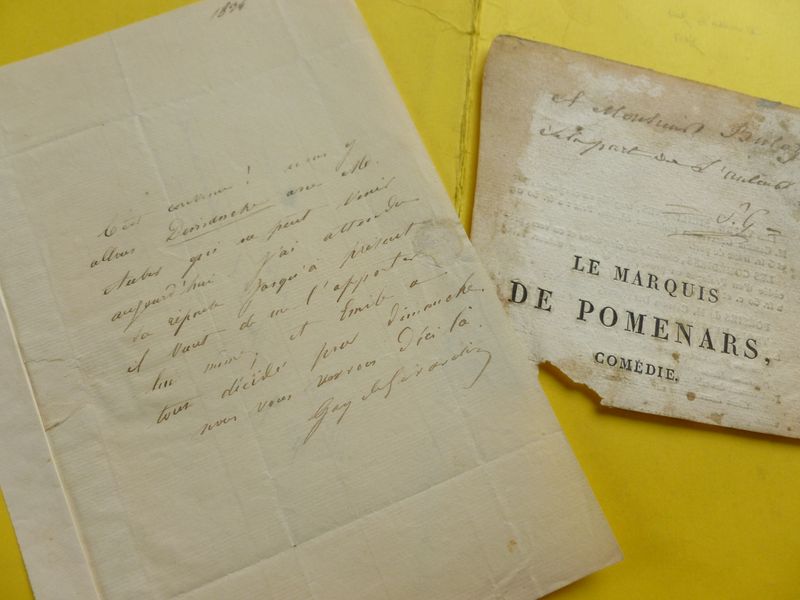 1834
C'est convenu ! nous y
allons Dimanche avec Mr.
Auber qui ne peut venir
aujourd'hui. J'ai attendu
sa réponse jusqu'à présent
il vient de me l'apporter
lui même, et Emile a
tout décidé pour dimanche.
nous vous verrons d'ici là.
Gay de Girardin
A Monsieur
de la part de l'auteur
S. G
LE MARQUIS
DE POMENARS,
COMÉDIE.